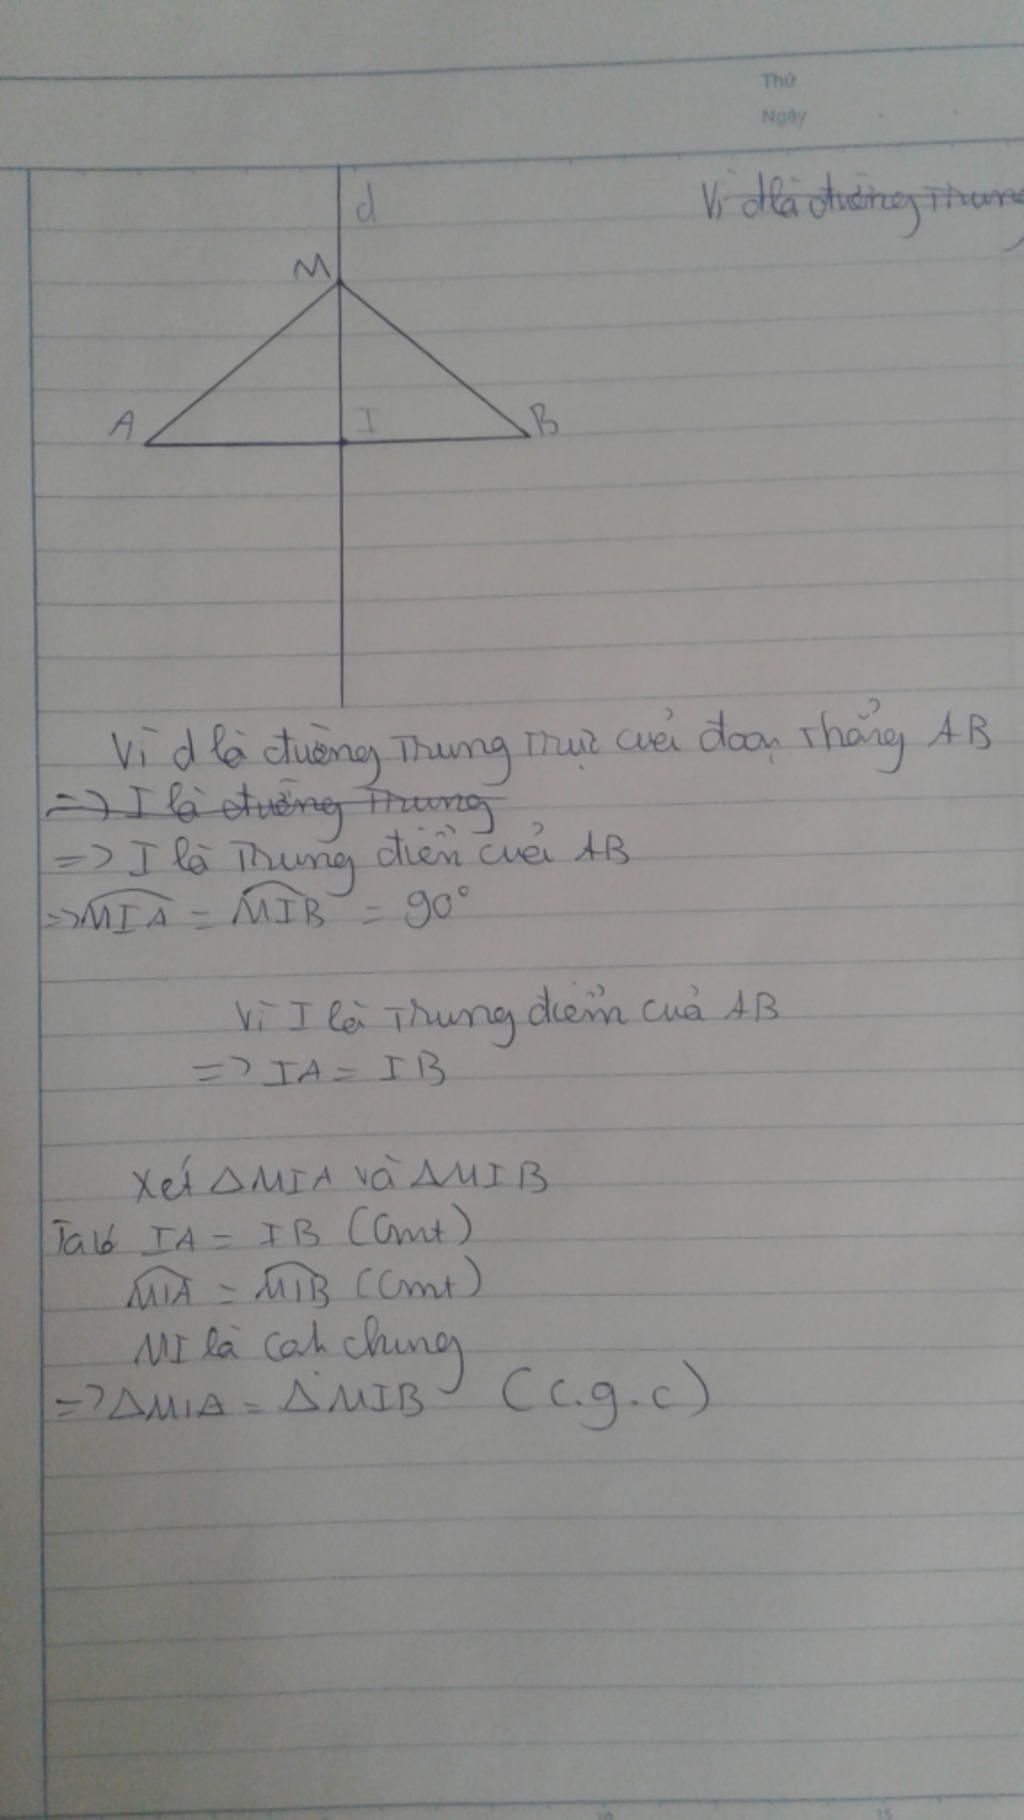 Thứ
Ngày
Vì d là đường Trung
d
M
A
I
B
Vì d là đường Trung Trực của đoạn Thẳng AB
=> I là đường Trung
=> I là Trung điểm của AB
=> MIA = MIB = 90°
Vì I là Trung điểm của AB
=> IA = IB
Xét ΔMIA và ΔMIB
Ta có IA = IB (Cmt)
MIA = MIB (Cmt)
MI là cạh chung
=> ΔMIA = ΔMIB (c.g.c)
10
15